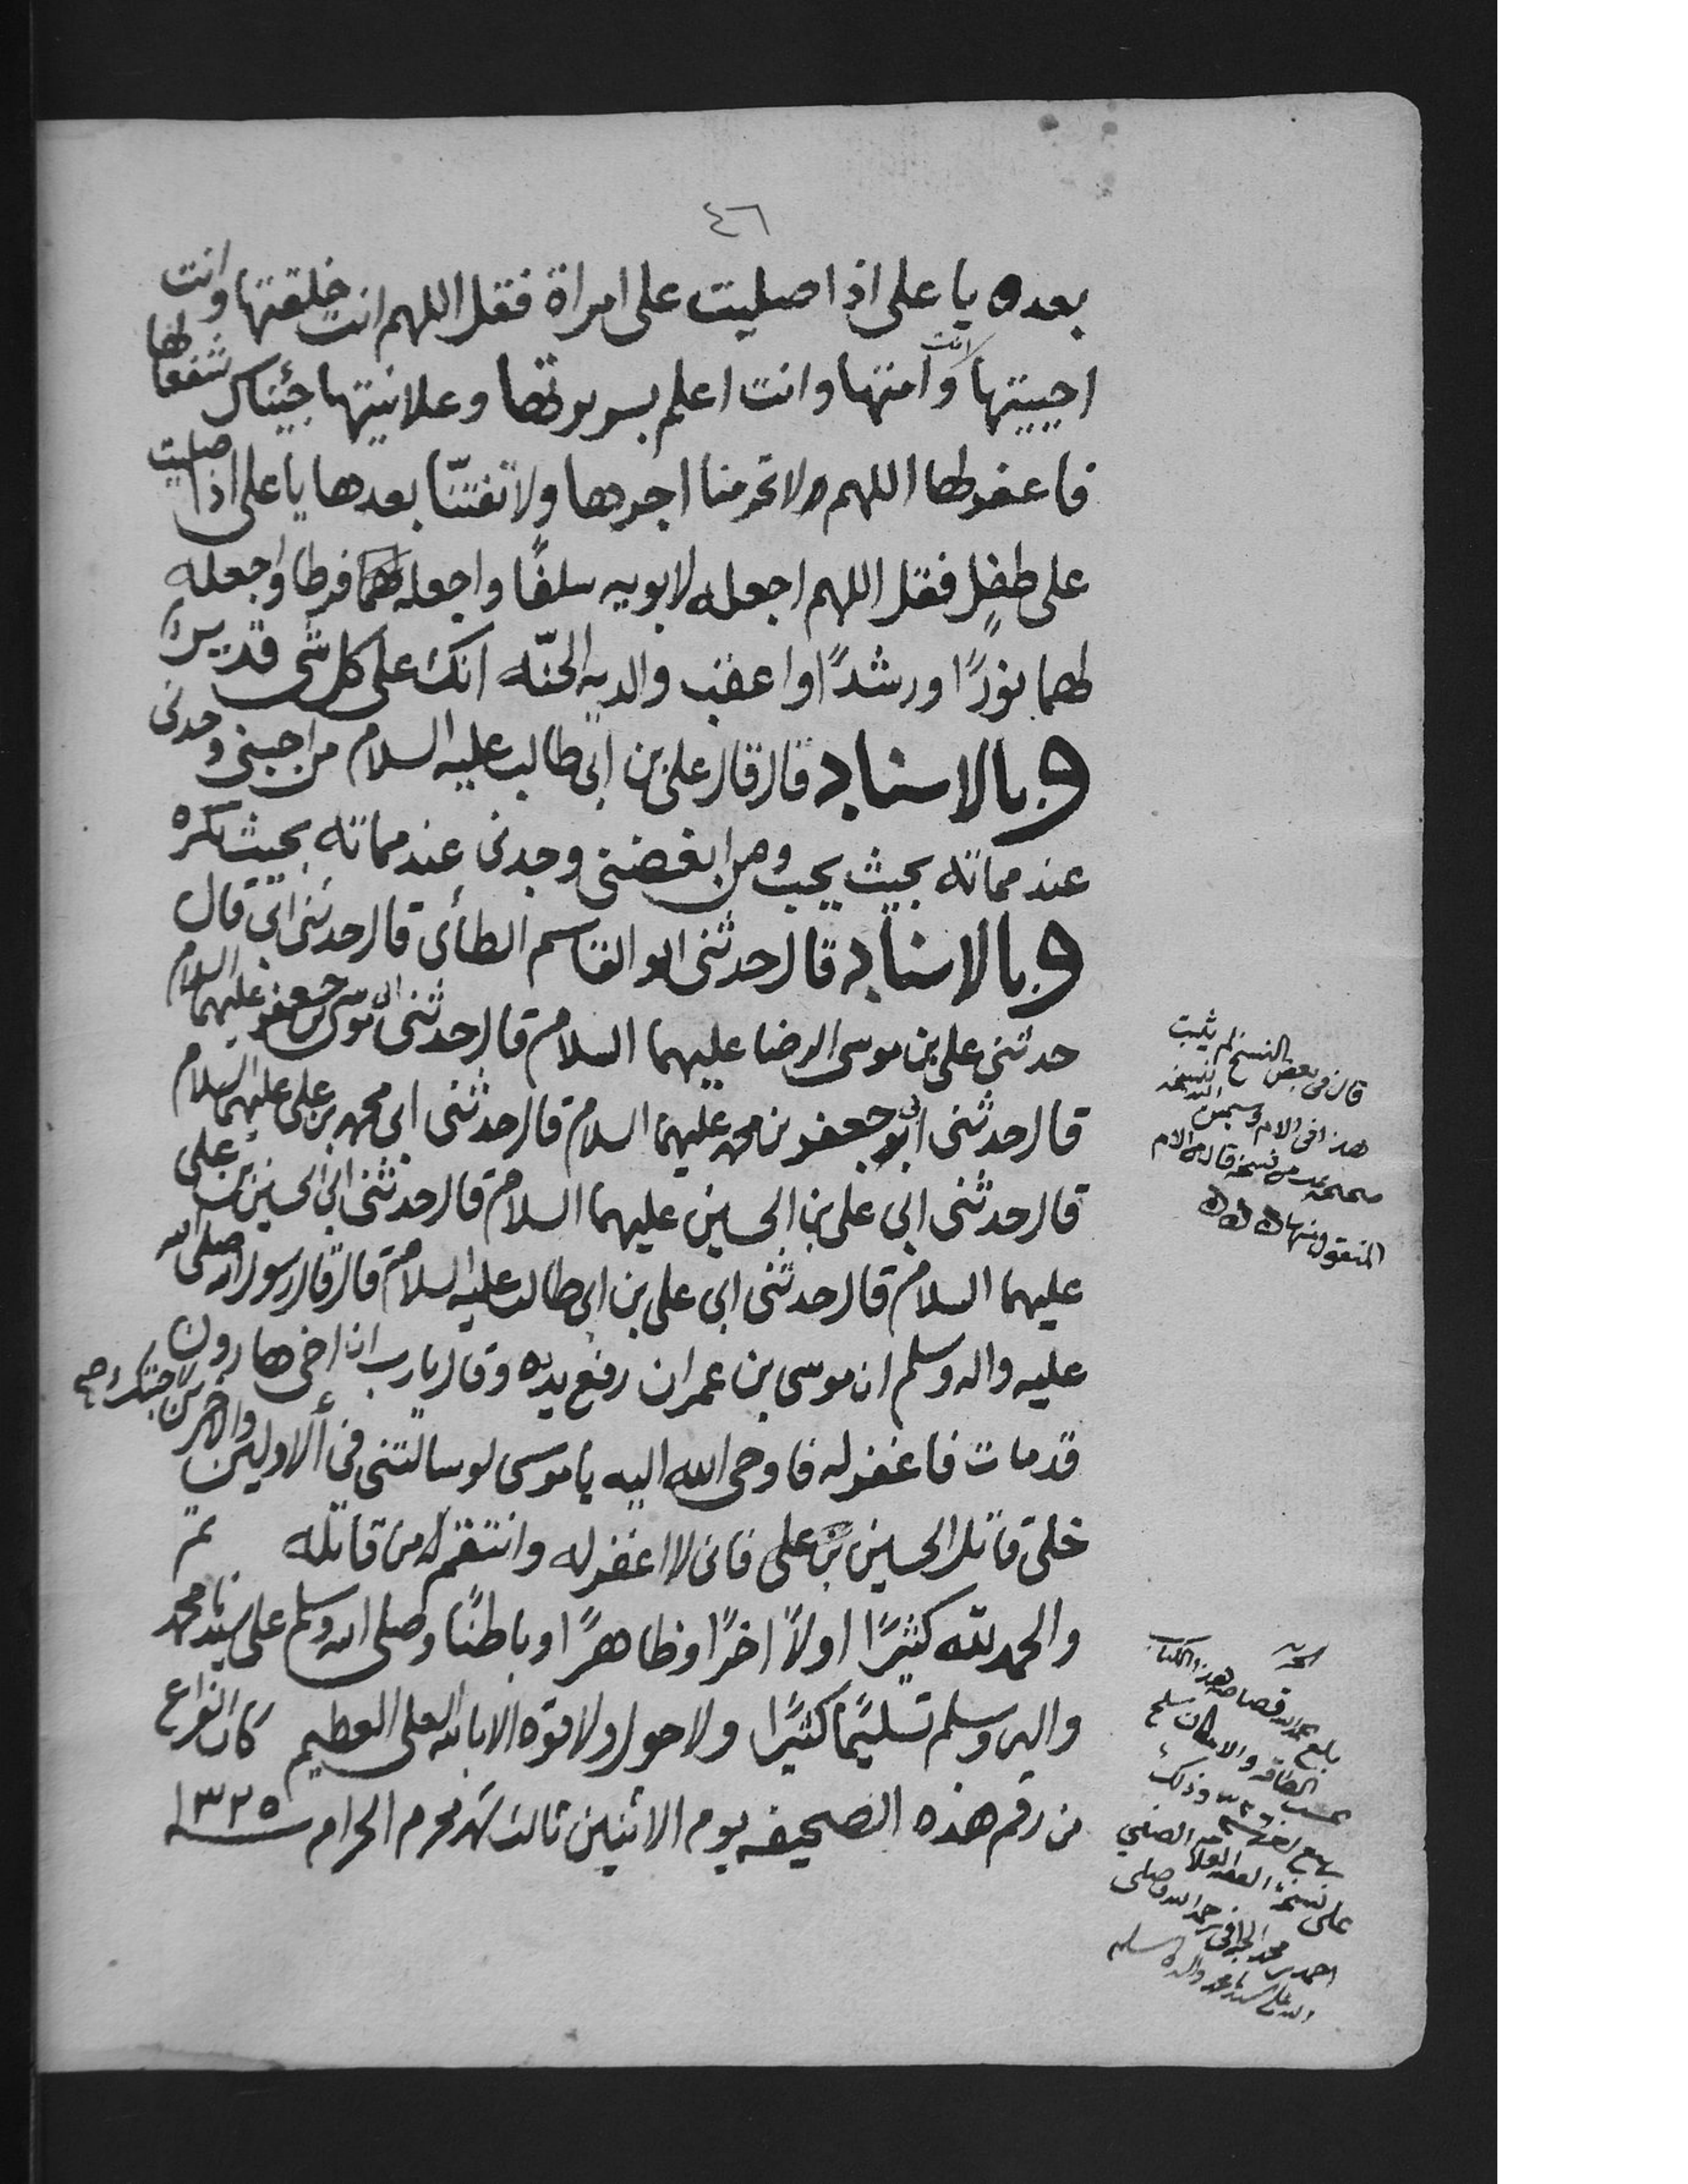 ٤٦
بعده يا على اذا صليت على امراة فقل اللهم انت خلقتها وانت
احييتها وانت امتها وانت اعلم بسريرتها وعلانيتها جئناك شفعا لها
فاغفر لها اللهم ولا تحرمنا اجرها ولا تفتنّا بعدها يا على اذا صليت
على طفلٍ فقل اللهم اجعله لابويه سلفًا واجعله لهما فرطا واجعله
لهما نورًا ورشدًا واعقب والديه الجنّه انك على كل شى قدير
وبالاسناد قال قال على بن ابى طالب عليه السلام من احبنى وجدنى
عند مماته بحيث يحب ومن ابغضنى وجدنى عند مماته بحيث يكره
وبالاسناد قال حدثنى ابو القاسم الطأى قال حدثنى ابى قال
حدثنى على بن موسى الرضا عليهما السلام قال حدثنى ابى موسى بن جعفر عليهما السلام
قال حدثنى ابى جعفر بن محمد عليهما السلام قال حدثنى ابى محمد بن على عليهما السلام
قال حدثنى ابى على بن الحسين عليهما السلام قال حدثنى ابى الحسين بن على
عليهما السلام قال حدثنى ابى على بن ابى طالب عليه السلام قال قال رسول الله صلى الله
عليه واله وسلم ان موسى بن عمران رفع يده وقال يارب ان اخى هارون
قد مات فاغفر له فاوحى الله اليه يا موسى لو سالتنى فى ألاولين والاخرين لاجبتك
خلى قاتل الحسين بن على فانى لا اغفر له وانتقم له من قاتله تم
والحمد لله كثيرًا اولاً اخرًا وظاهرًا وباطنًا وصلى الله وسلم على سيدنا محمد
واله وسلم تسليمًا كثيرًا ولا حول ولا قوه الا بالله العلى العظيم كان الفراغ
من رقم هذه الصحيفه يوم الاثنين ثالث شهر محرم الحرام ١٣٢٥
قال فى بعض النسخ لم يثبت
هذا فى الام
من نسخه قال فى الام
المنقول منها
بلغ قصاصه هذا الكتاب
بحسب الطاقه والامكان
وذلك
على نسخة العلامه الصفي
احمد بن محمد رحمه الله وصلى
الله على سيدنا محمد واله وسلم